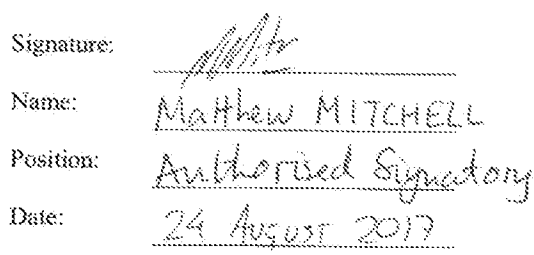 Signature:
Name: Matthew MITCHELL
Position: Authorised Signatory
Date: 24 August 2017